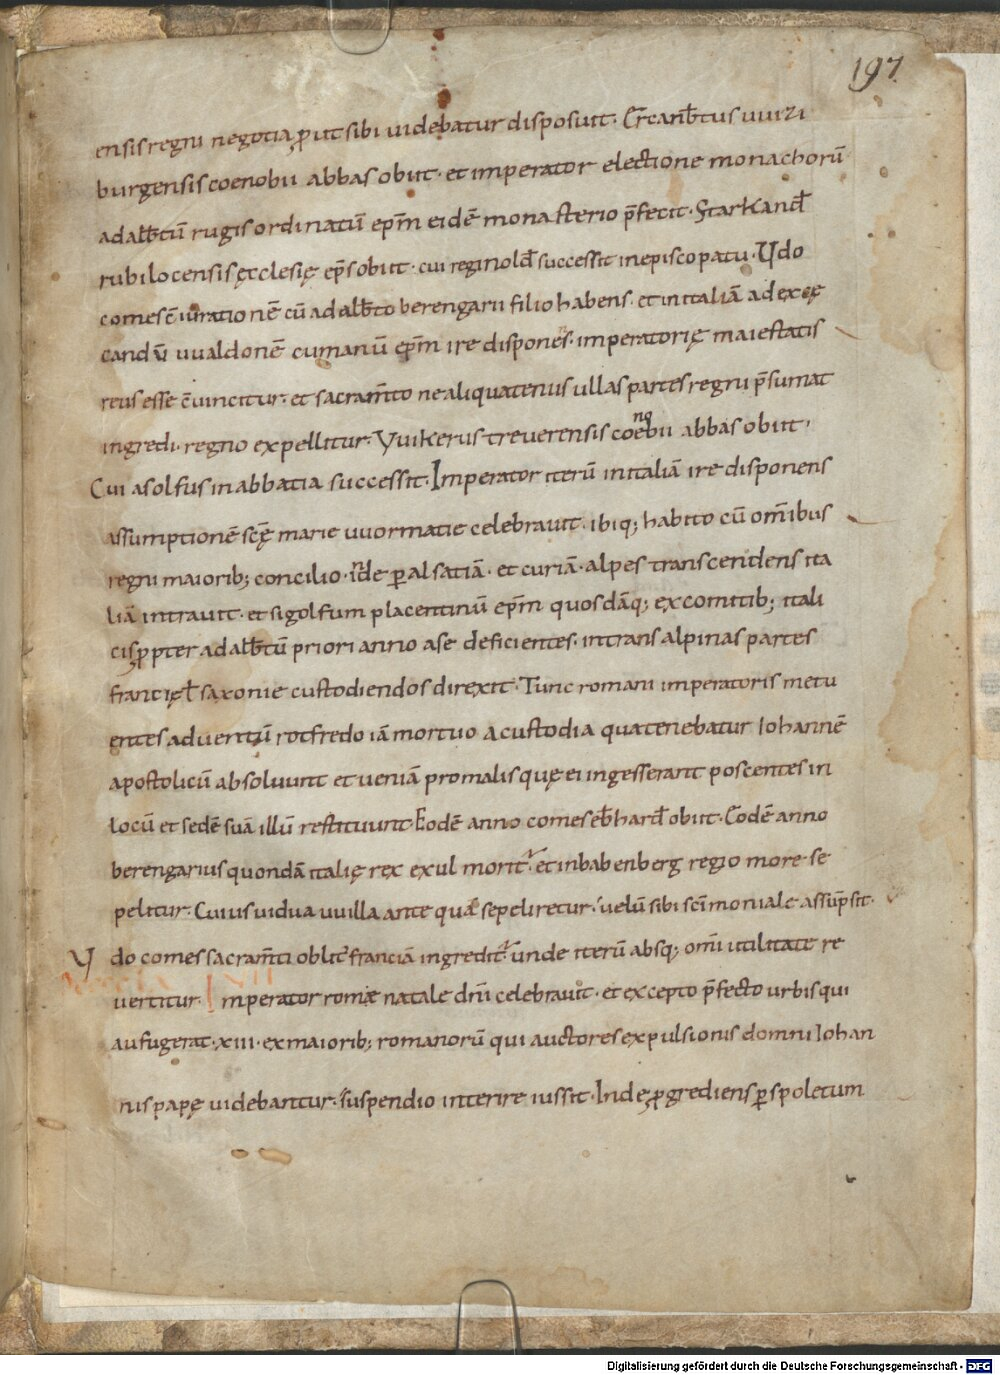 197.
ensis regni negotia ꝓut sibi uidebatur disposuit. Ercanb̄tus uuizi
burgensis coenobii abbas obiit. et imperator electione monachorū
adalb̄tū rugis ordinatū ep̄m eidē monasterio p̄fecit. Starkand̄
rubilocensis ęcclesię ep̄s obiit. cui reginold̄ successit in episcopatu. Vdo
comes c̄iurationē cū adalb̄to berengarii filio habens. et in italiā ad excę
candū uualdonē cumanū ep̄m ire disponens. imperatorię maiestatis
reus esse c̄uincitur. et sacram̄to ne aliquatenus ullas partes regni p̄sumat
ingredi. regno expellitur. Vuikerus treuerensis coenobii abbas obiit.
Cui asolfus in abbatia successit. Imperator iterū in italiā ire disponens
assumptionē scę̄ marie uuormatie celebrauit. ibiq; habito cū om̄ibus
regni maiorib; concilio. īde ꝑ alsatiā. et curiā. alpes transcendens ita
liā intrauit. et sigolfum placentinū ep̄m quosdāq; ex comitib; itali
cis ꝓpter adalb̄tū priori anno a se deficientes. in transalpinas partes
francię ł saxonie custodiendos direxit. Tunc romani imperatoris metu
entes aduentū rotfredo iā mortuo a custodia qua tenebatur Iohannē
apostolicū absoluunt et ueniā pro malis quę ei ingesserant poscentes in
locū et sedē suā illū restituunt. Eodē anno comes eb̄hard̄ obiit. Eodē anno
berengarius quondā italię rex exul morit᷑. et in babenberg regio more se
pelitur. Cuius uidua uuilla ante quā sepeliretur. uelum sibi sc̄imoniale assūpsit.
Vdo comes sacram̄ti oblit᷒ franciā ingredit᷑. unde iterū absq; omī utilitate re
uertitur. Imperator romæ natale dn̄i celebrauit. et excepto p̄fecto urbis qui
aufugerat. xiii. ex maiorib; romanorū qui auctores expulsionis domni Iohan
nis papę uidebantur. suspendio interire iussit. Inde ꝓgrediens ꝑ spoletum
Digitalisierung gefördert durch die Deutsche Forschungsgemeinschaft - DFG